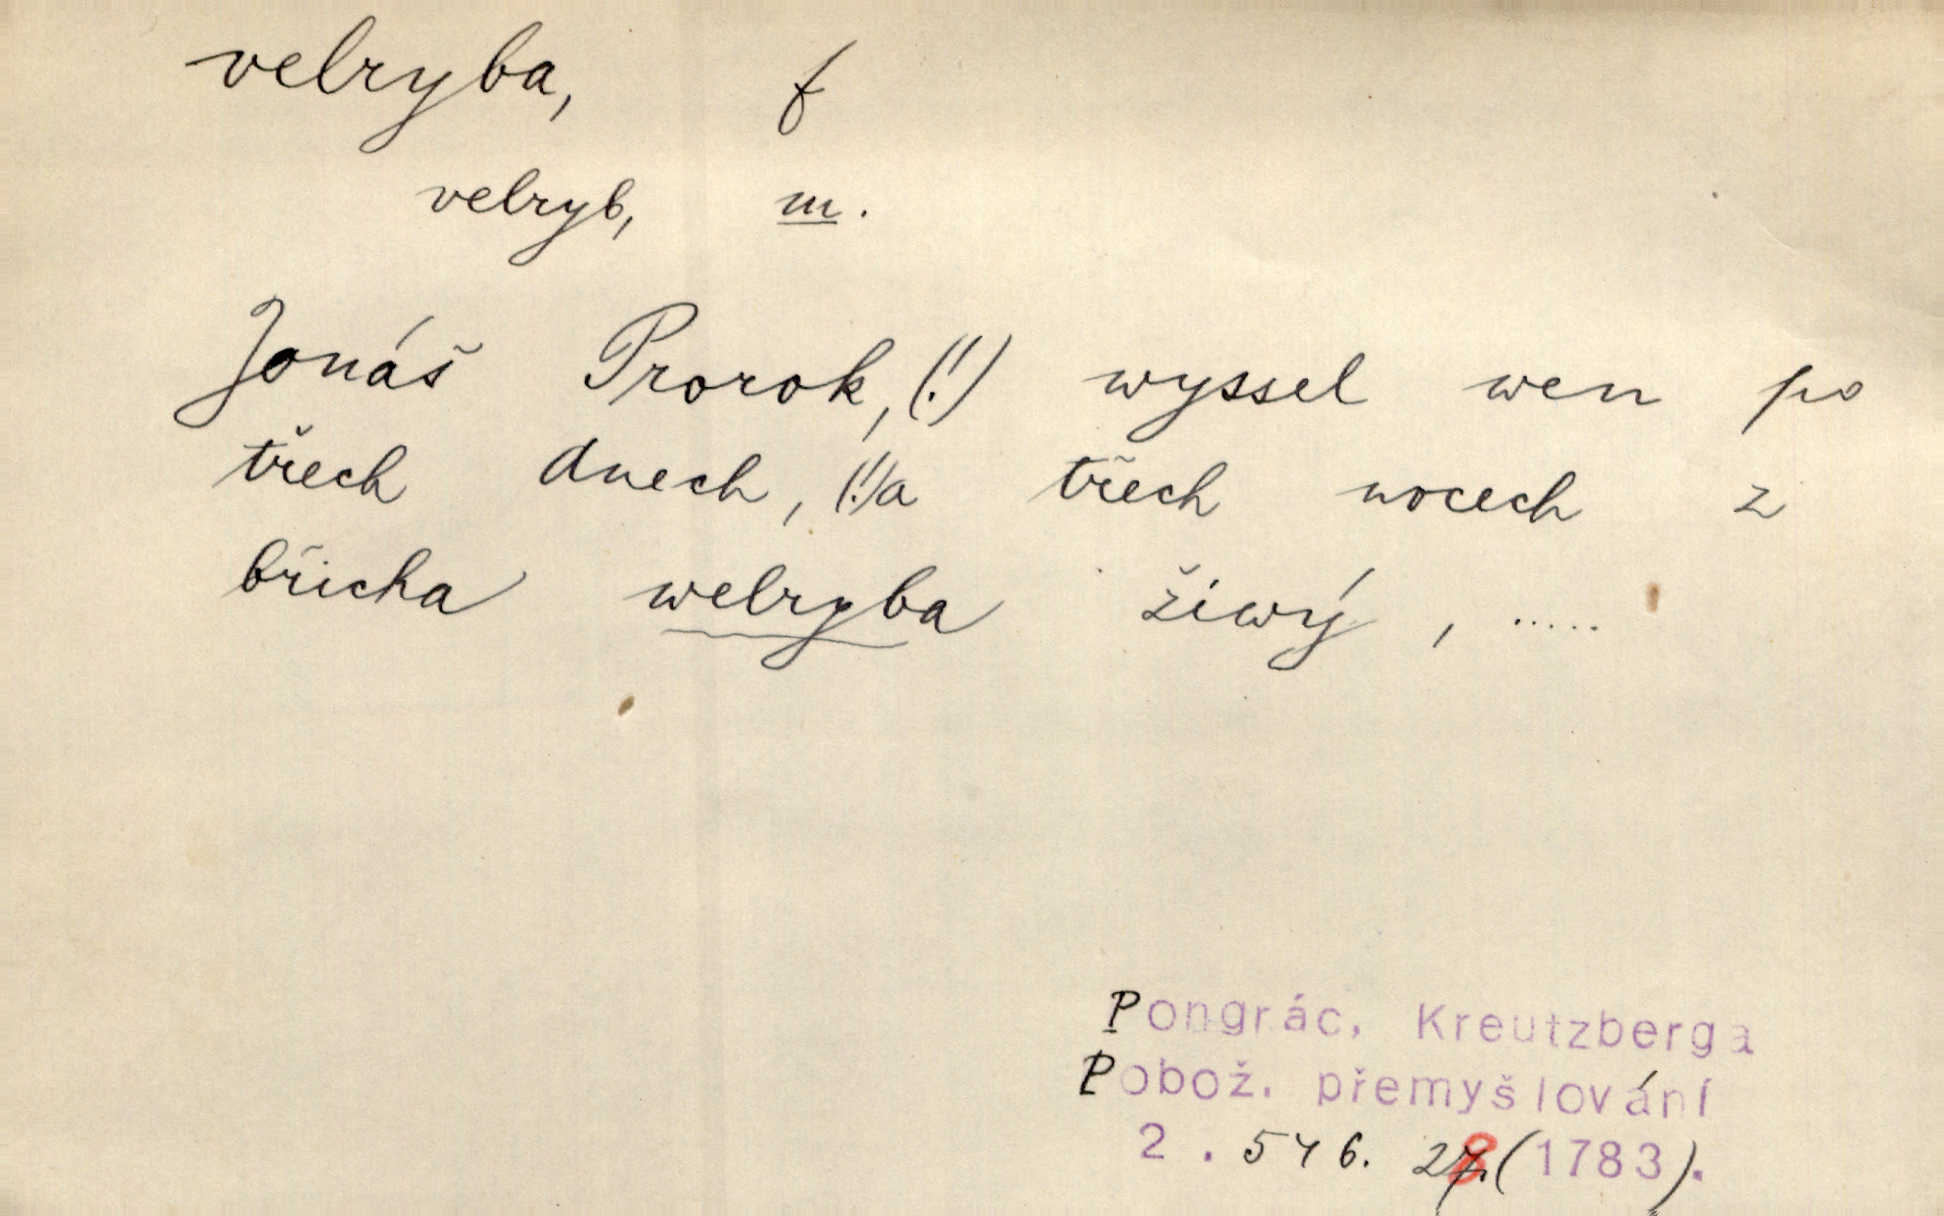 velryba, f
velryb, m.
Jonáš Prorok,(!) wyssel wen po
třech dnech,(!)a třech nocech z
břicha welryba žiwý, .....
Pongrác, Kreutzberga
Pobož. přemyšlování
2. 546. 28.(1783).